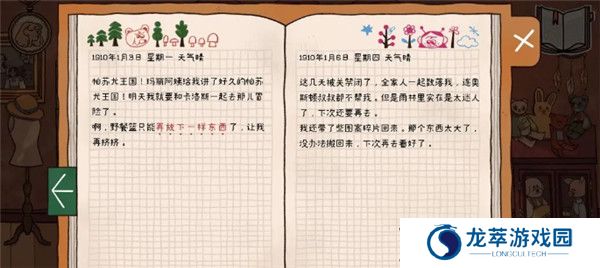 1910年1月3日 星期一 天气晴
帕苏尤王国！玛丽阿姨给我讲了好久的帕苏
尤王国！明天我就要和卡洛斯一起去那儿冒
险了。
啊，野餐篮只能再放下一样东西了，让我
再挤挤。
1910年1月6日 星期四 天气晴
这几天被关禁闭了，全家人一起数落我，连奥
斯顿叔叔都不帮我。但是雨林里实在是太迷人
了，下次还要再去。
我还带了些图案碎片回来。那个东西太大了，
没办法搬回来，下次再去看好了。
龙萃游戏园
LONGCUITECH